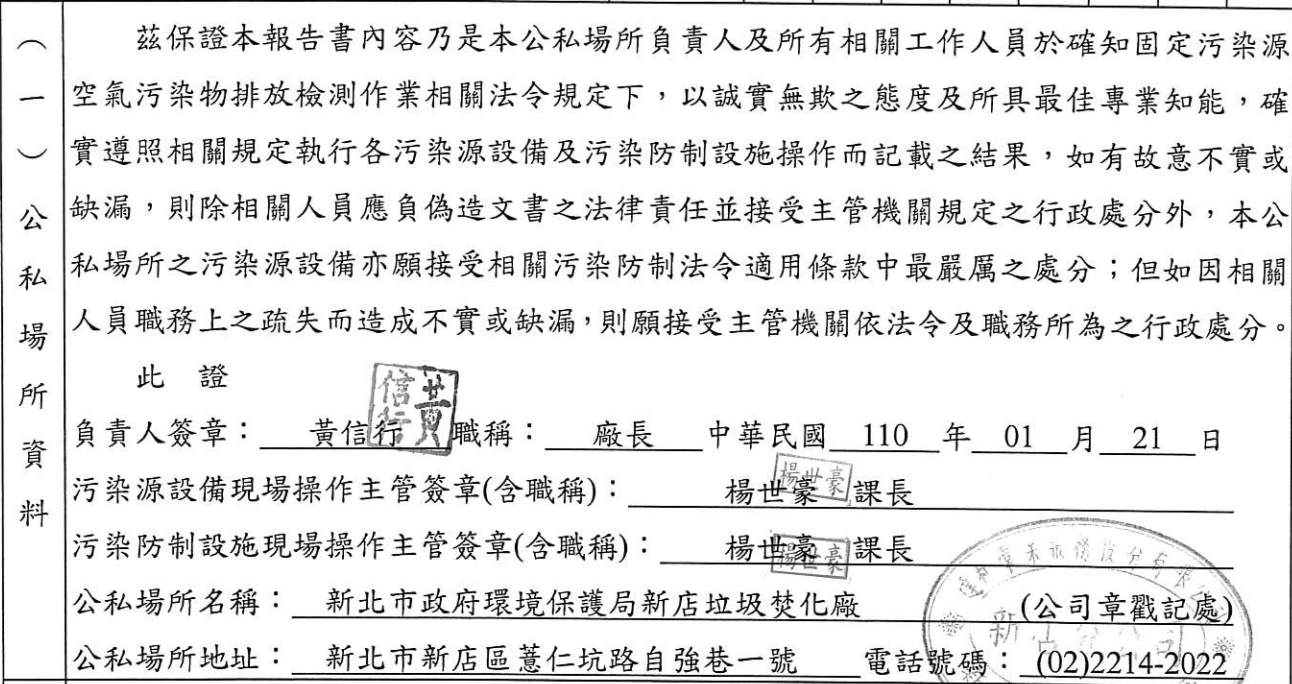 （一）公私場所資料
茲保證本報告書內容乃是本公私場所負責人及所有相關工作人員於確知固定污染源
空氣污染物排放檢測作業相關法令規定下，以誠實無欺之態度及所具最佳專業知能，確
實遵照相關規定執行各污染源設備及污染防制設施操作而記載之結果，如有故意不實或
缺漏，則除相關人員應負偽造文書之法律責任並接受主管機關規定之行政處分外，本公
私場所之污染源設備亦願接受相關污染防制法令適用條款中最嚴厲之處分；但如因相關
人員職務上之疏失而造成不實或缺漏，則願接受主管機關依法令及職務所為之行政處分。
此 證
負責人簽章： 黃信行 職稱： 廠長 中華民國 110 年 01 月 21 日
黃信行
污染源設備現場操作主管簽章(含職稱)： 楊世豪 課長
楊世豪
污染防制設施現場操作主管簽章(含職稱)： 楊世豪 課長
楊世豪
公私場所名稱： 新北市政府環境保護局新店垃圾焚化廠 (公司章戳記處)
公私場所地址： 新北市新店區薏仁坑路自強巷一號 電話號碼： (02)2214-2022